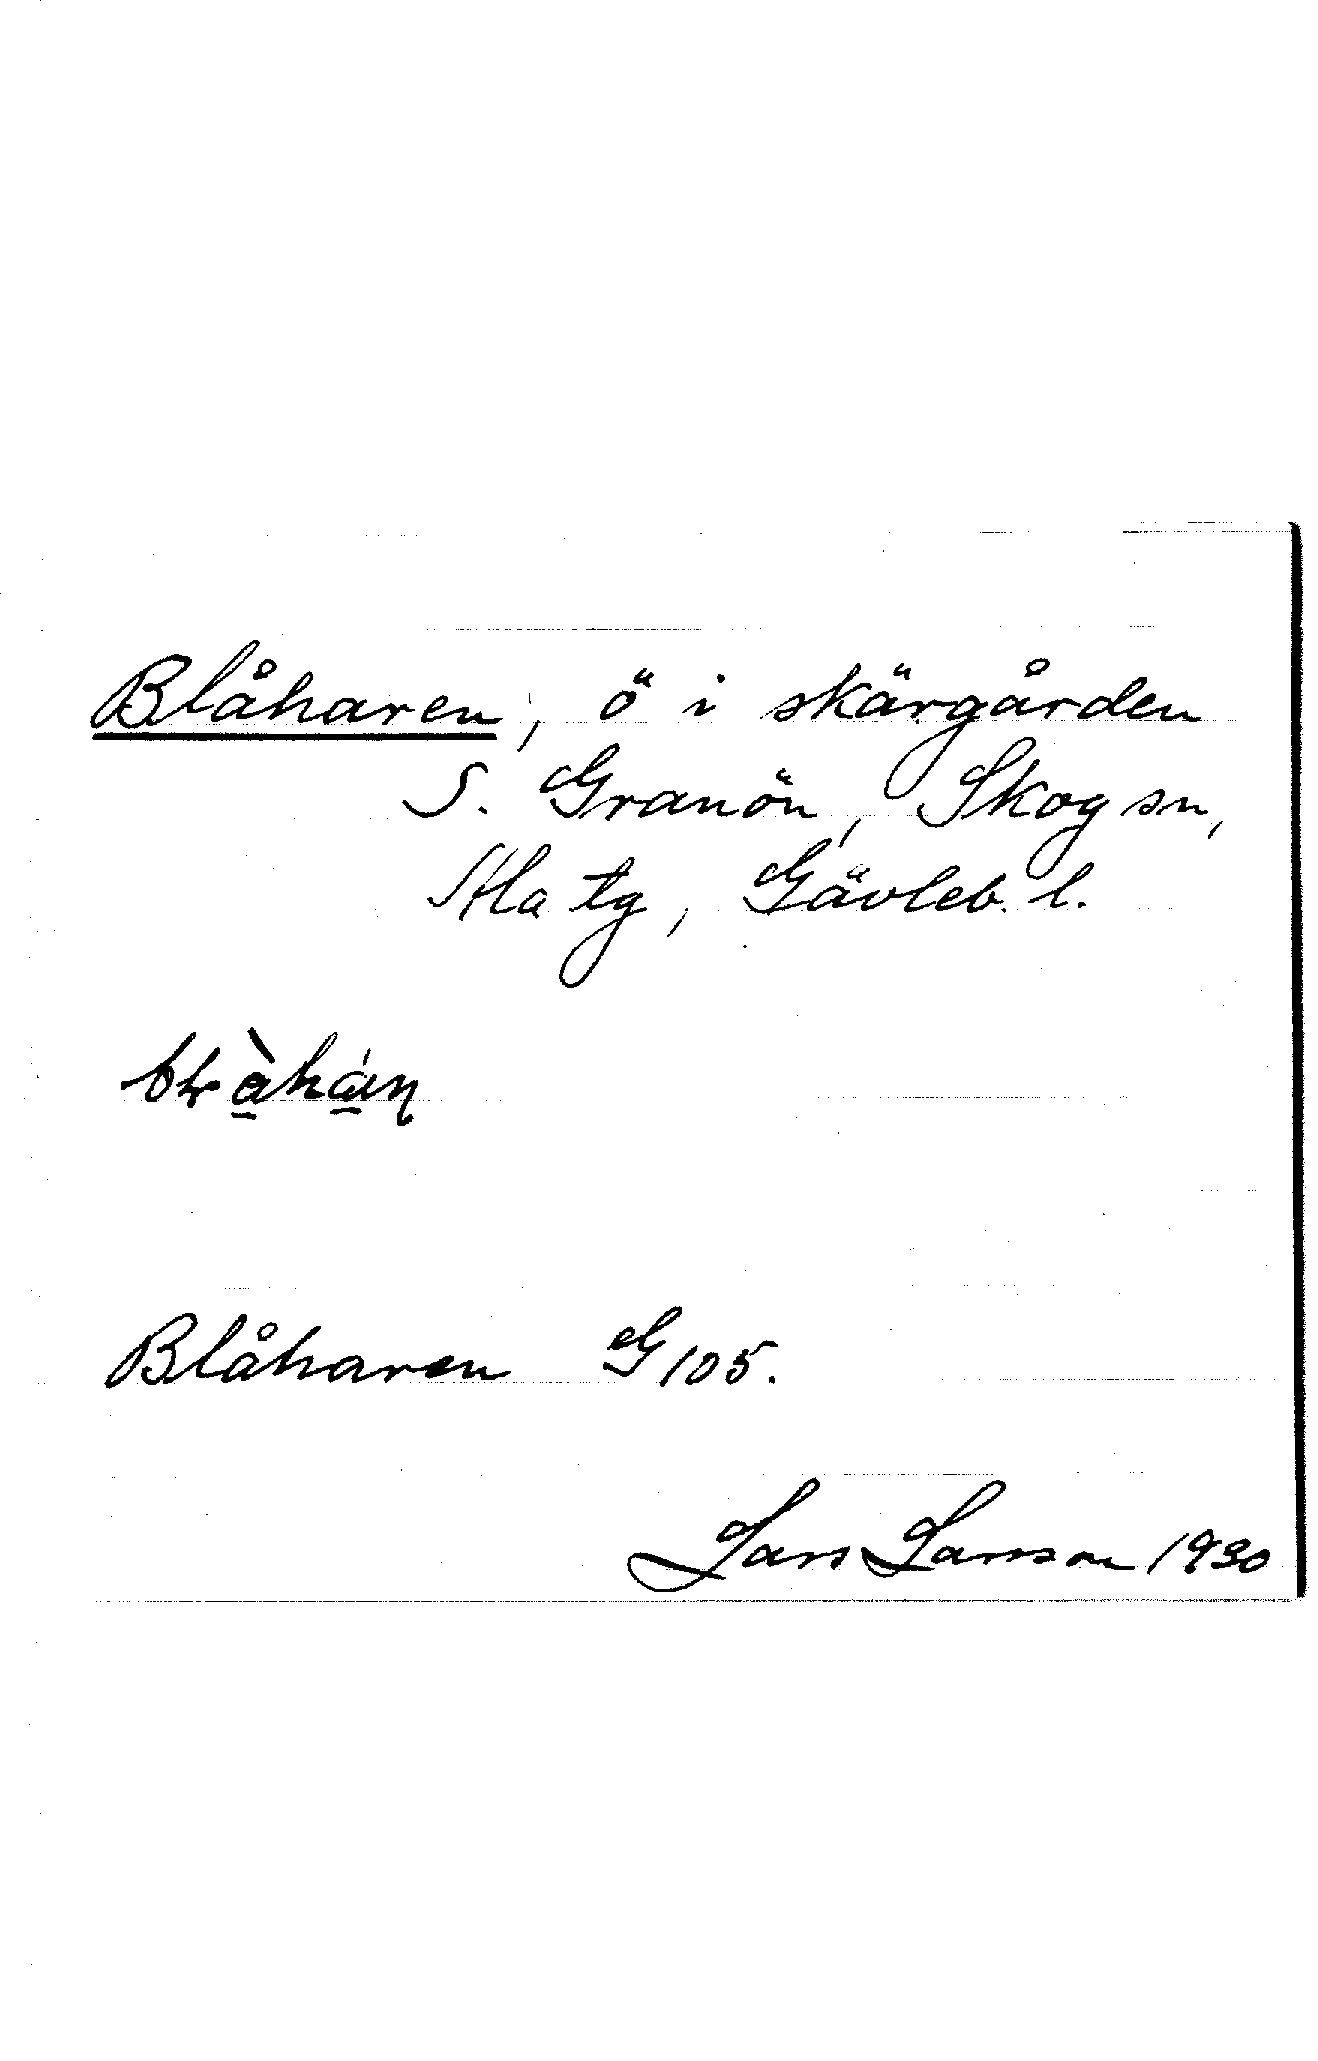 Blåharen, ö i skärgården
S. Granön, Skog sn,
Ala tg, Gävleb. l.
Blåharen G 105.
Lars Larsson 1930